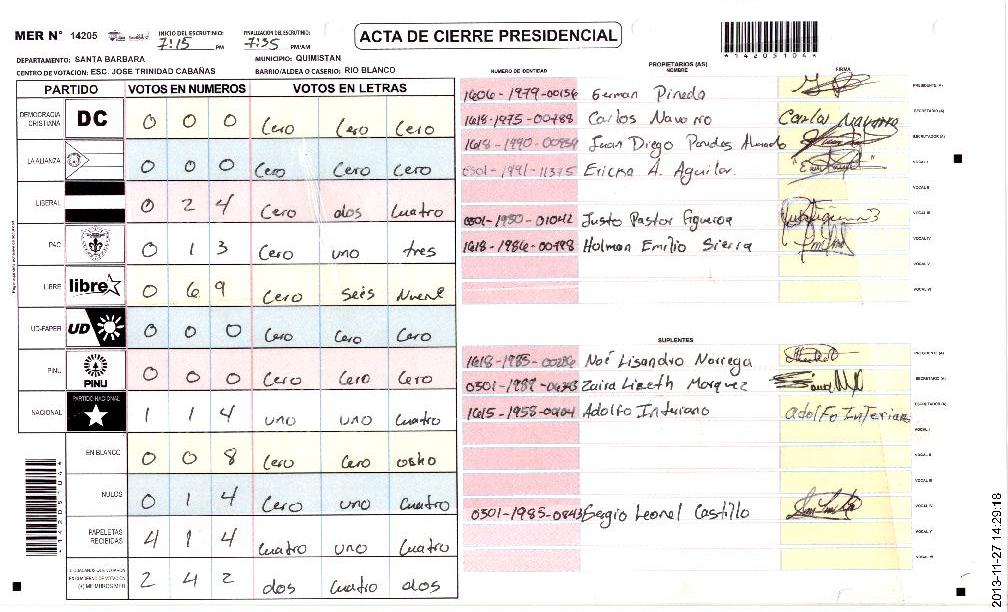 MER N° 14205 INICIO DEL ESCRUTINIO: 7:15 PM FINALIZACION DEL ESCRUTINIO: 7:35 PM/AM
ACTA DE CIERRE PRESIDENCIAL
*14205104*
DEPARTAMENTO: SANTA BARBARA MUNICIPIO: QUIMISTAN
CENTRO DE VOTACION: ESC. JOSE TRINIDAD CABAÑAS BARRIO/ALDEA O CASERIO: RIO BLANCO
PARTIDO VOTOS EN NUMEROS VOTOS EN LETRAS
DEMOCRACIA CRISTIANA DC 0 0 0 Cero Cero Cero
LA ALIANZA 0 0 0 Cero Cero Cero
LIBERAL 0 2 4 Cero dos Cuatro
PAC 0 1 3 Cero uno tres
LIBRE libre 0 6 9 Cero Seis Nueve
UD-FAPER UD 0 0 0 Cero Cero Cero
PINU PINU 0 0 0 Cero Cero Cero
NACIONAL PARTIDO NACIONAL 1 1 4 uno uno Cuatro
EN BLANCO 0 0 8 Cero Cero osho
NULOS 0 1 4 Cero uno Cuatro
PAPELETAS RECIBIDAS 4 1 4 Cuatro uno Cuatro
CIUDADANOS QUE VOTARON EN CUADERNO DE VOTACIÓN (+) MIEMBROS MER 2 4 2 dos Cuatro dos
*14205104*
PROPIETARIOS (AS)
NUMERO DE IDENTIDAD NOMBRE FIRMA
1606-1979-00156 German Pineda PRESIDENTE (A)
1618-1975-00488 Carlos Navarro Carlos Navarro SECRETARIO (A)
Juan Diego ESCRUTADOR (A)
0501-1991-11375 Ericka A. Aguilar. VOCAL I
VOCAL II
0501-1950-01042 Justo Pastor Figueroa VOCAL III
1618-1986-00498 Holman Emilio Sierra VOCAL IV
VOCAL V
VOCAL VI
SUPLENTES
1618-1985-00286 Noé Lisandro Norrega PRESIDENTE (A)
Zaira Lizeth Marquez SECRETARIO (A)
1615-1958-00104 Adolfo Interiano adolfo Interiano ESCRUTADOR (A)
VOCAL I
VOCAL II
VOCAL III
0501-1985-0843 Sergio Leonel Castillo VOCAL IV
VOCAL V
VOCAL VI
2013-11-27 14:29:18